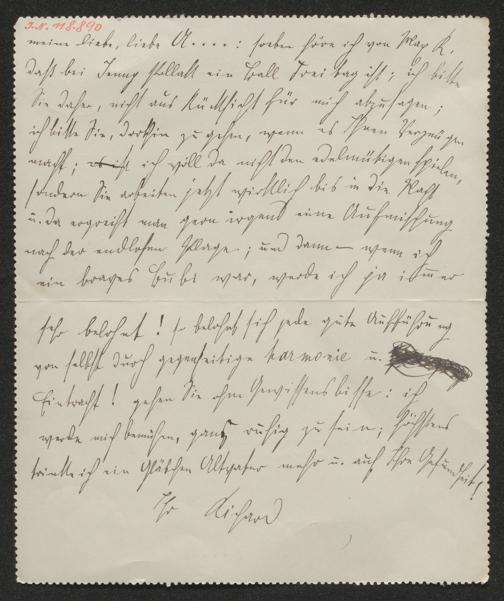 I.N. 118.890
meine liebe, liebe A....: soeben höre ich von Max K.
daß bei Jenny Pollak ein Ball Dreitag ist; ich bitte
Sie daher, nicht aus Rücksicht für mich abzusagen;
ich bitte Sie, dorthin zu gehen, wenn es Ihnen Vergnügen
macht; ich will da nicht den edelmütigen spielen,
sondern Sie arbeiten jetzt wirklich bis in die Nacht
u. da ergreift man gern irgend eine Auffrischung
nach der endlosen Plage; und dann – wenn ich
ein braves Bubi war, werde ich ja immer
sehr belohnt! es belohnt sich jede gute Aufführung
von selbst durch gegenseitige Harmonie u.
Eintracht! gehen Sie ohne Gewissensbisse: ich
werde mich bemühen, ganz ruhig zu sein; höchstens
trinke ich ein Gläschen Altvater mehr u. auf Ihre Gesundheit!
Ihr Richard